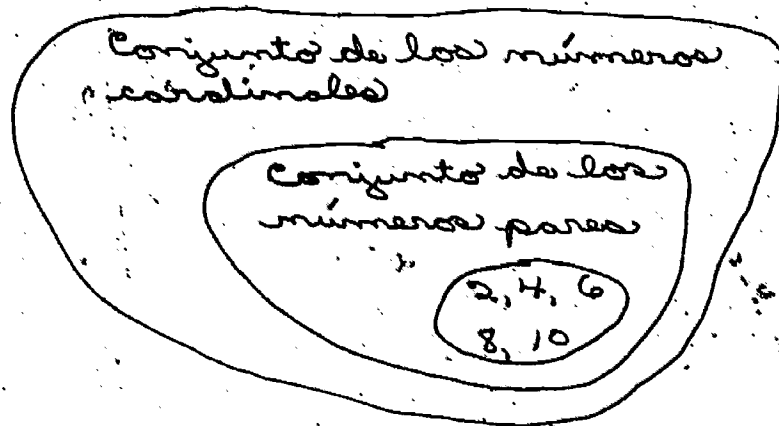 Conjunto de los números
cardinales
Conjunto de los
números pares
2, 4, 6
8, 10